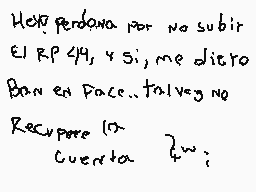 Hey perdona por no subir
El RP 44, y si, me diero
Ban en Face.. talvez no
Recupere la
cuenta :